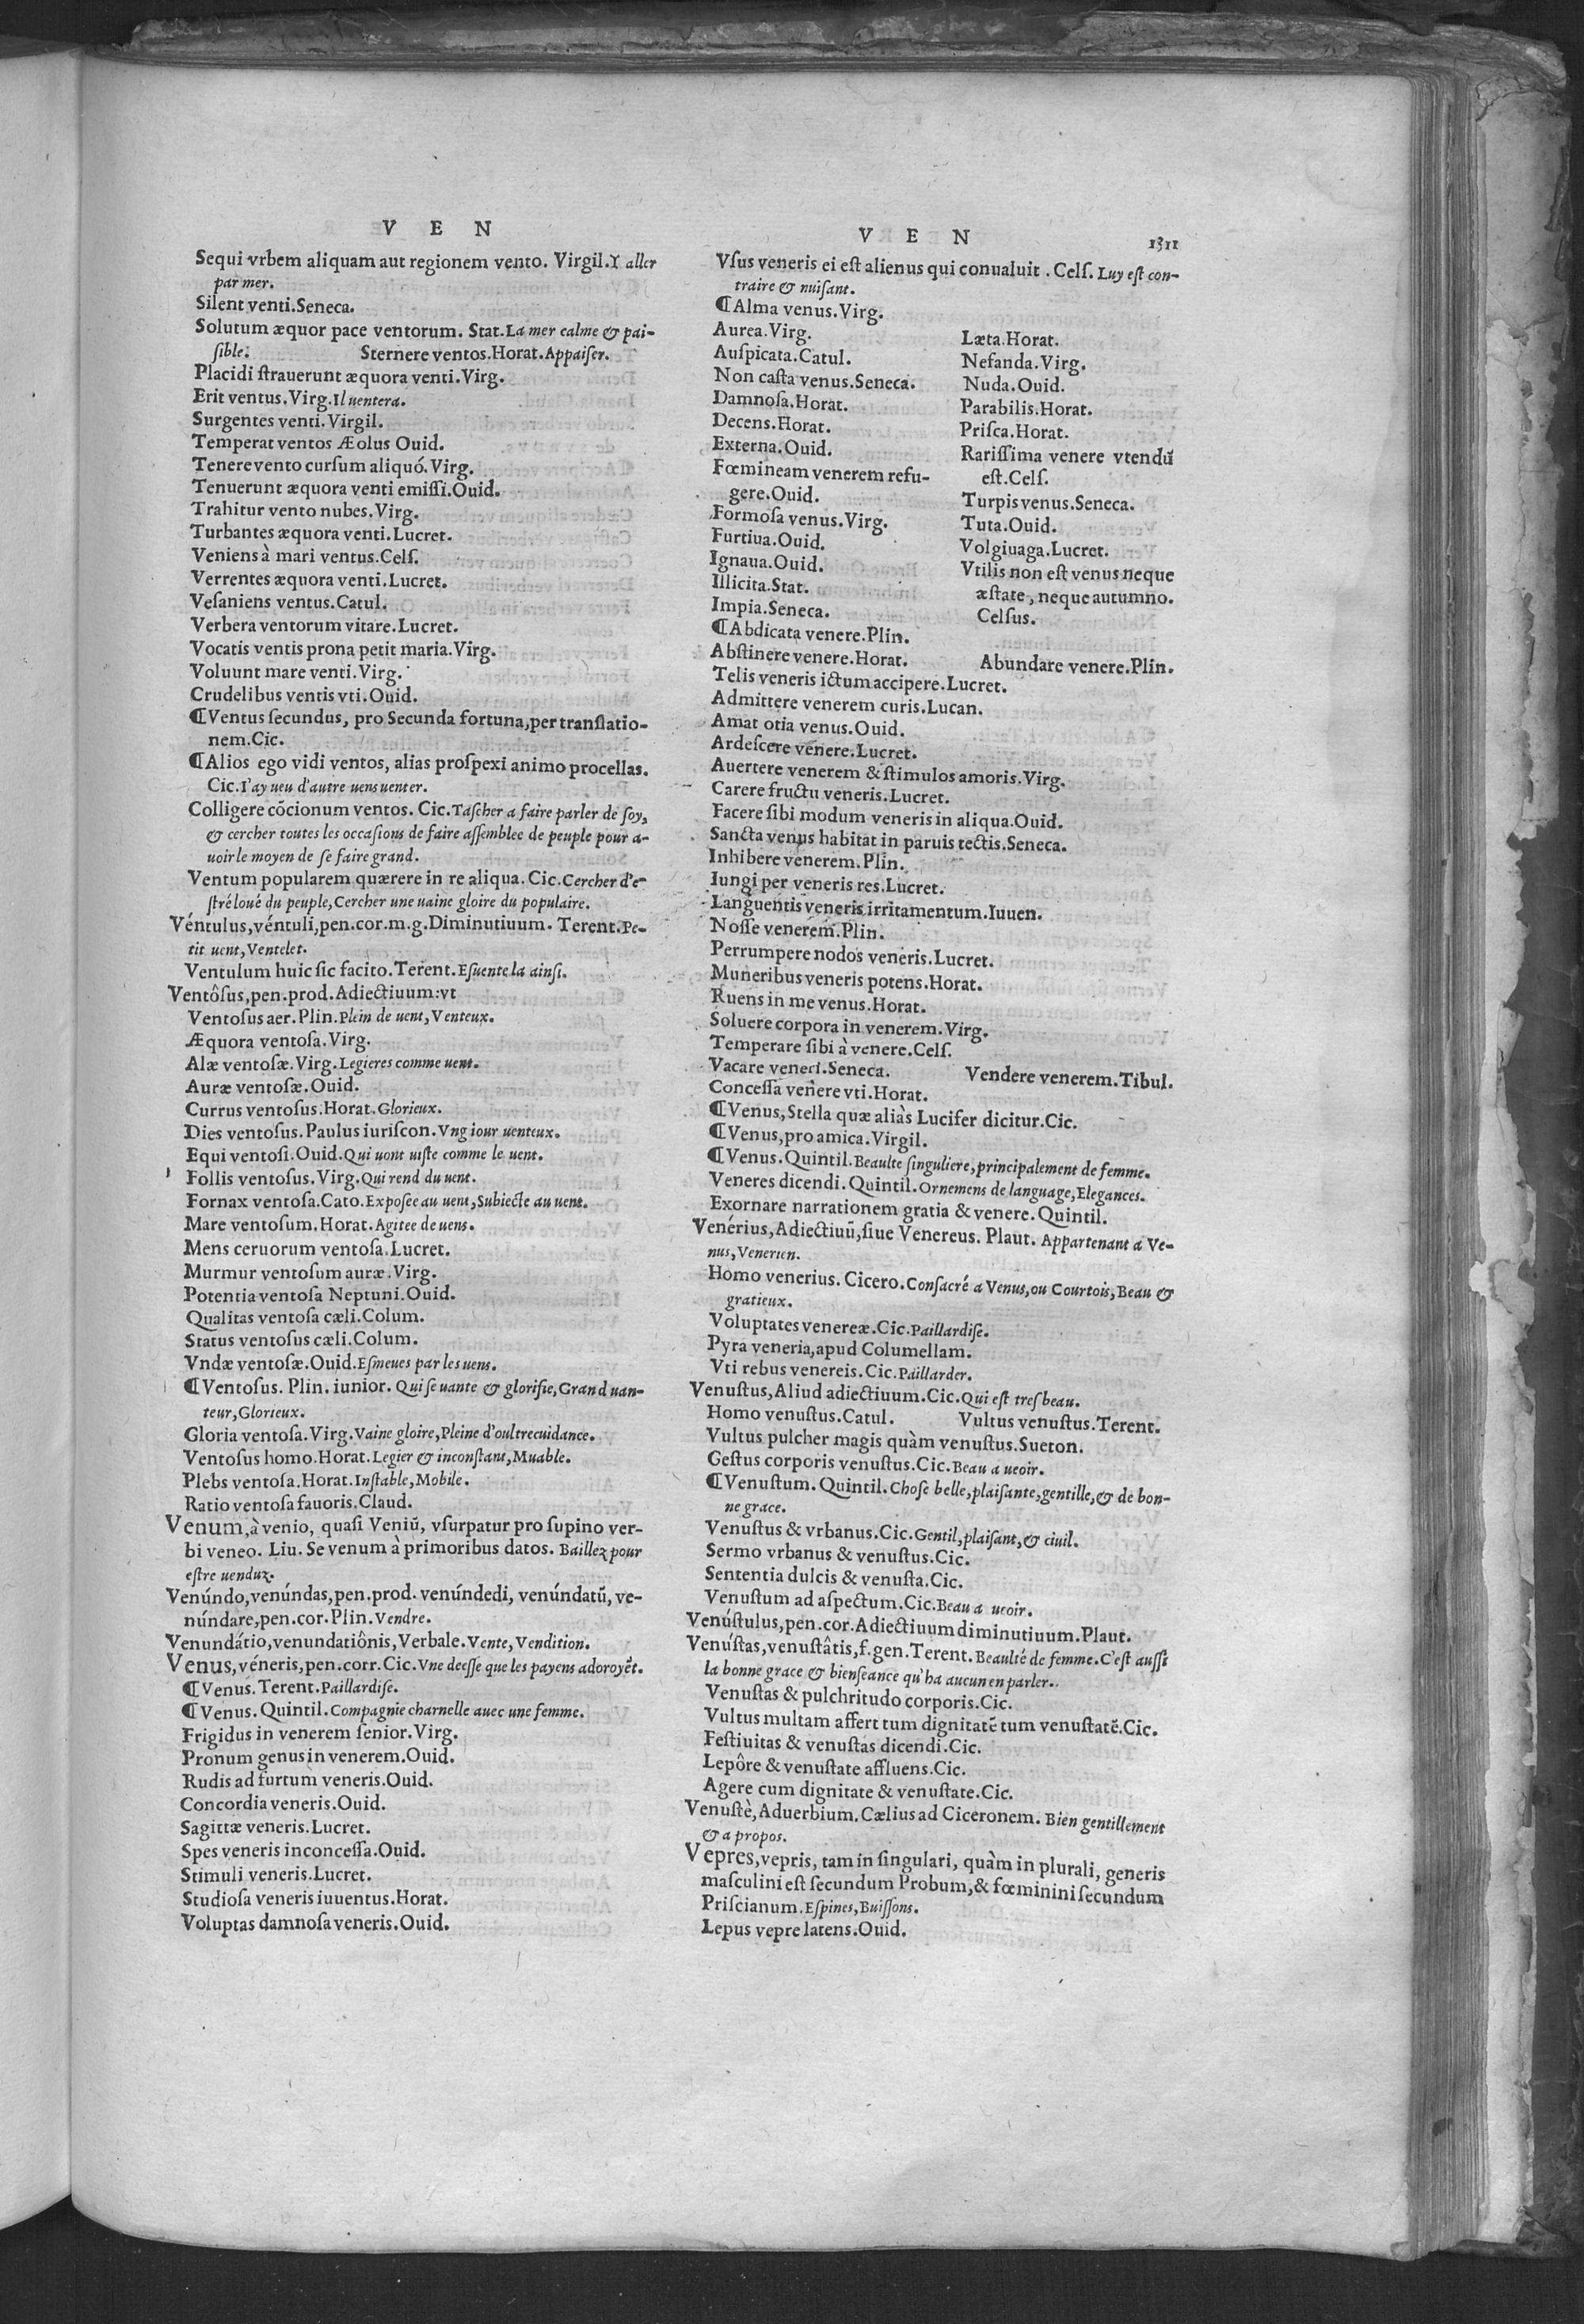 V E N
Sequi vrbem aliquam aut regionem vento. Virgil. Y aller
par mer.
Silent venti. Seneca.
Solutum æquor pace ventorum. Stat. La mer calme & pai-
ſible. Sternere ventos. Horat. Appaiſer.
Placidi ſtrauerunt æquora venti. Virg.
Erit ventus. Virg. Il uentera.
Surgentes venti. Virgil.
Temperat ventos Æolus Ouid.
Tenere vento curſum aliquó. Virg.
Tenuerunt æquora venti emiſſi. Ouid.
Trahitur vento nubes. Virg.
Turbantes æquora venti. Lucret.
Veniens à mari ventus. Celſ.
Verrentes æquora venti. Lucret.
Veſaniens ventus. Catul.
Verbera ventorum vitare. Lucret.
Vocatis ventis prona petit maria. Virg.
Voluunt mare venti. Virg.
Crudelibus ventis vti. Ouid.
¶Ventus ſecundus, pro Secunda fortuna, per tranſlatio-
nem. Cic.
¶Alios ego vidi ventos, alias proſpexi animo procellas.
Cic. I'ay ueu d'autre uens uenter.
Colligere cōcionum ventos. Cic. Taſcher a faire parler de ſoy,
& cercher toutes les occaſions de faire aſſemblee de peuple pour a-
uoir le moyen de ſe faire grand.
Ventum popularem quærere in re aliqua. Cic. Cercher d'e-
ſtré loué du peuple, Cercher une uaine gloire du populaire.
Véntulus, véntuli, pen. cor. m. g. Diminutiuum. Terent. Pe-
tit uent, Ventelet.
Ventulum huic ſic facito. Terent. Eſuente la ainſi.
Ventôſus, pen. prod. Adiectiuum: vt
Ventoſus aer. Plin. Plein de uent, Venteux.
Æquora ventoſa. Virg.
Alæ ventoſæ. Virg. Legieres comme uent.
Auræ ventoſæ. Ouid.
Currus ventoſus. Horat. Glorieux.
Dies ventoſus. Paulus iuriſcon. Vng iour uenteux.
Equi ventoſi. Ouid. Qui uont uiſte comme le uent.
Follis ventoſus. Virg. Qui rend du uent.
Fornax ventoſa. Cato. Expoſee au uent, Subiecte au uent.
Mare ventoſum. Horat. Agitee de uens.
Mens ceruorum ventoſa. Lucret.
Murmur ventoſum auræ. Virg.
Potentia ventoſa Neptuni. Ouid.
Qualitas ventoſa cæli. Colum.
Status ventoſus cæli. Colum.
Vndæ ventoſæ. Ouid. Eſmeues par les uens.
¶Ventoſus. Plin. iunior. Qui ſe uante & glorifie, Grand uan-
teur, Glorieux.
Gloria ventoſa. Virg. Vaine gloire, Pleine d'oultrecuidance.
Ventoſus homo. Horat. Legier & inconſtant, Muable.
Plebs ventoſa. Horat. Inſtable, Mobile.
Ratio ventoſa fauoris. Claud.
Venum, à venio, quaſi Veniū, vſurpatur pro ſupino ver-
bi veneo. Liu. Se venum à primoribus datos. Baillez pour
eſtre uenduz.
Venúndo, venúndas, pen. prod. venúndedi, venúndatū, ve-
núndare, pen. cor. Plin. Vendre.
Venundátio, venundatiônis, Verbale. Vente, Vendition.
Venus, véneris, pen. corr. Cic. Vne deeſſe que les payens adoroyēt.
¶Venus. Terent. Paillardiſe.
¶Venus. Quintil. Compagnie charnelle auec une femme.
Frigidus in venerem ſenior. Virg.
Pronum genus in venerem. Ouid.
Rudis ad furtum veneris. Ouid.
Concordia veneris. Ouid.
Sagittæ veneris. Lucret.
Spes veneris inconceſſa. Ouid.
Stimuli veneris. Lucret.
Studioſa veneris iuuentus. Horat.
Voluptas damnoſa veneris. Ouid.
V E N 1311
Vſus veneris ei eſt alienus qui conualuit. Celſ. Luy eſt con-
traire & nuiſant.
¶Alma venus. Virg.
Aurea. Virg.
Auſpicata. Catul.
Non caſta venus. Seneca.
Damnoſa. Horat.
Decens. Horat.
Externa. Ouid.
Fœmineam venerem refu-
gere. Ouid.
Formoſa venus. Virg.
Furtiua. Ouid.
Ignaua. Ouid.
Illicita. Stat.
Impia. Seneca.
Læta. Horat.
Nefanda. Virg.
Nuda. Ouid.
Parabilis. Horat.
Priſca. Horat.
Rariſſima venere vtendū
eſt. Celſ.
Turpis venus. Seneca.
Tuta. Ouid.
Volgiuaga. Lucret.
Vtilis non eſt venus neque
æſtate, neque autumno.
Celſus.
¶Abdicata venere. Plin.
Abſtinere venere. Horat. Abundare venere. Plin.
Telis veneris ictum accipere. Lucret.
Admittere venerem curis. Lucan.
Amat otia venus. Ouid.
Ardeſcere venere. Lucret.
Auertere venerem & ſtimulos amoris. Virg.
Carere fructu veneris. Lucret.
Facere ſibi modum veneris in aliqua. Ouid.
Sancta venus habitat in paruis tectis. Seneca.
Inhibere venerem. Plin.
Iungi per veneris res. Lucret.
Languentis veneris irritamentum. Iuuen.
Noſſe venerem. Plin.
Perrumpere nodos veneris. Lucret.
Muneribus veneris potens. Horat.
Ruens in me venus. Horat.
Soluere corpora in venerem. Virg.
Temperare ſibi à venere. Celſ.
Vacare veneri. Seneca. Vendere venerem. Tibul.
Conceſſa venere vti. Horat.
¶Venus, Stella quæ aliàs Lucifer dicitur. Cic.
¶Venus, pro amica. Virgil.
¶Venus. Quintil. Beaulte ſinguliere, principalement de femme.
Veneres dicendi. Quintil. Ornemens de language, Elegances.
Exornare narrationem gratia & venere. Quintil.
Venérius, Adiectiuū, ſiue Venereus. Plaut. Appartenant a Ve-
nus, Venerien.
Homo venerius. Cicero. Conſacré a Venus, ou Courtois, Beau &
gratieux.
Voluptates venereæ. Cic. Paillardiſe.
Pyra veneria, apud Columellam.
Vti rebus venereis. Cic. Paillarder.
Venuſtus, Aliud adiectiuum. Cic. Qui eſt treſbeau.
Homo venuſtus. Catul. Vultus venuſtus. Terent.
Vultus pulcher magis quàm venuſtus. Sueton.
Geſtus corporis venuſtus. Cic. Beau a ueoir.
¶Venuſtum. Quintil. Choſe belle, plaiſante, gentille, & de bon-
ne grace.
Venuſtus & vrbanus. Cic. Gentil, plaiſant, & ciuil.
Sermo vrbanus & venuſtus. Cic.
Sententia dulcis & venuſta. Cic.
Venuſtum ad aſpectum. Cic. Beau a ueoir.
Venúſtulus, pen. cor. Adiectiuum diminutiuum. Plaut.
Venúſtas, venuſtâtis, f. gen. Terent. Beaulté de femme. C'eſt auſſi
la bonne grace & bienſeance qu'ha aucun en parler.
Venuſtas & pulchritudo corporis. Cic.
Vultus multam affert tum dignitatē tum venuſtatē. Cic.
Feſtiuitas & venuſtas dicendi. Cic.
Lepôre & venuſtate affluens. Cic.
Agere cum dignitate & venuſtate. Cic.
Venuſtè, Aduerbium. Cælius ad Ciceronem. Bien gentillement
& a propos.
Vepres, vepris, tam in ſingulari, quàm in plurali, generis
maſculini eſt ſecundum Probum, & fœminini ſecundum
Priſcianum. Eſpines, Buiſſons.
Lepus vepre latens. Ouid.